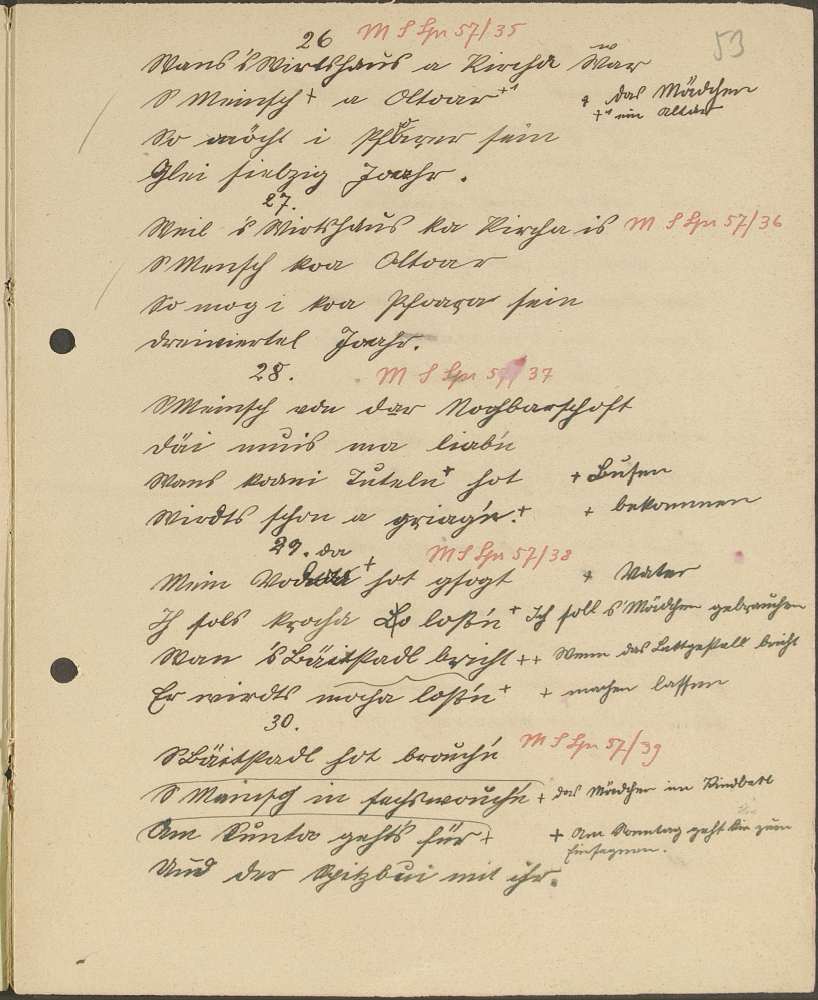 26 M S Spr 57/35
53
Wans 's Wirtshaus a Kircha war
S Meinsch + a Oltoar ++
+ das Mädchen
++ ein Altar
So möcht i Pfarrer sein
Glei siebzig Joahr.
27.
Weil 's Wirtshaus ka Kircha is M S Spr 57/36
S Mensch koa Oltoar
So mog i koa Pfoara sein
dreiviertel Joahr.
28. M S Spr 57/37
S Meinsch von dar Nochbarschoft
däi muis ma liab'n
Wans koani Tuteln + hot + Busen
Wirdts schon a griag'n. + + bekommen
29. M S Spr 57/38
Mein Voda + hot gsogt + Vater
Ich sols brocha lo loß'n + Ich soll s' Mädchen gebrauchen
Wan 's Bäitstadl bricht ++ Wenn das Bettgestell bricht
Er wirdts mocha loß'n + + machen lassen
30. M S Spr 57/39
S Bäitstadl hot brouch'n
S Meinsch in sechswouch'n + das Mädchen im Kindbett
Am Sunta geht's für + + Am Sonntag geht sie zum
Einsegnen.
Und der Spitzbui mit ihr.